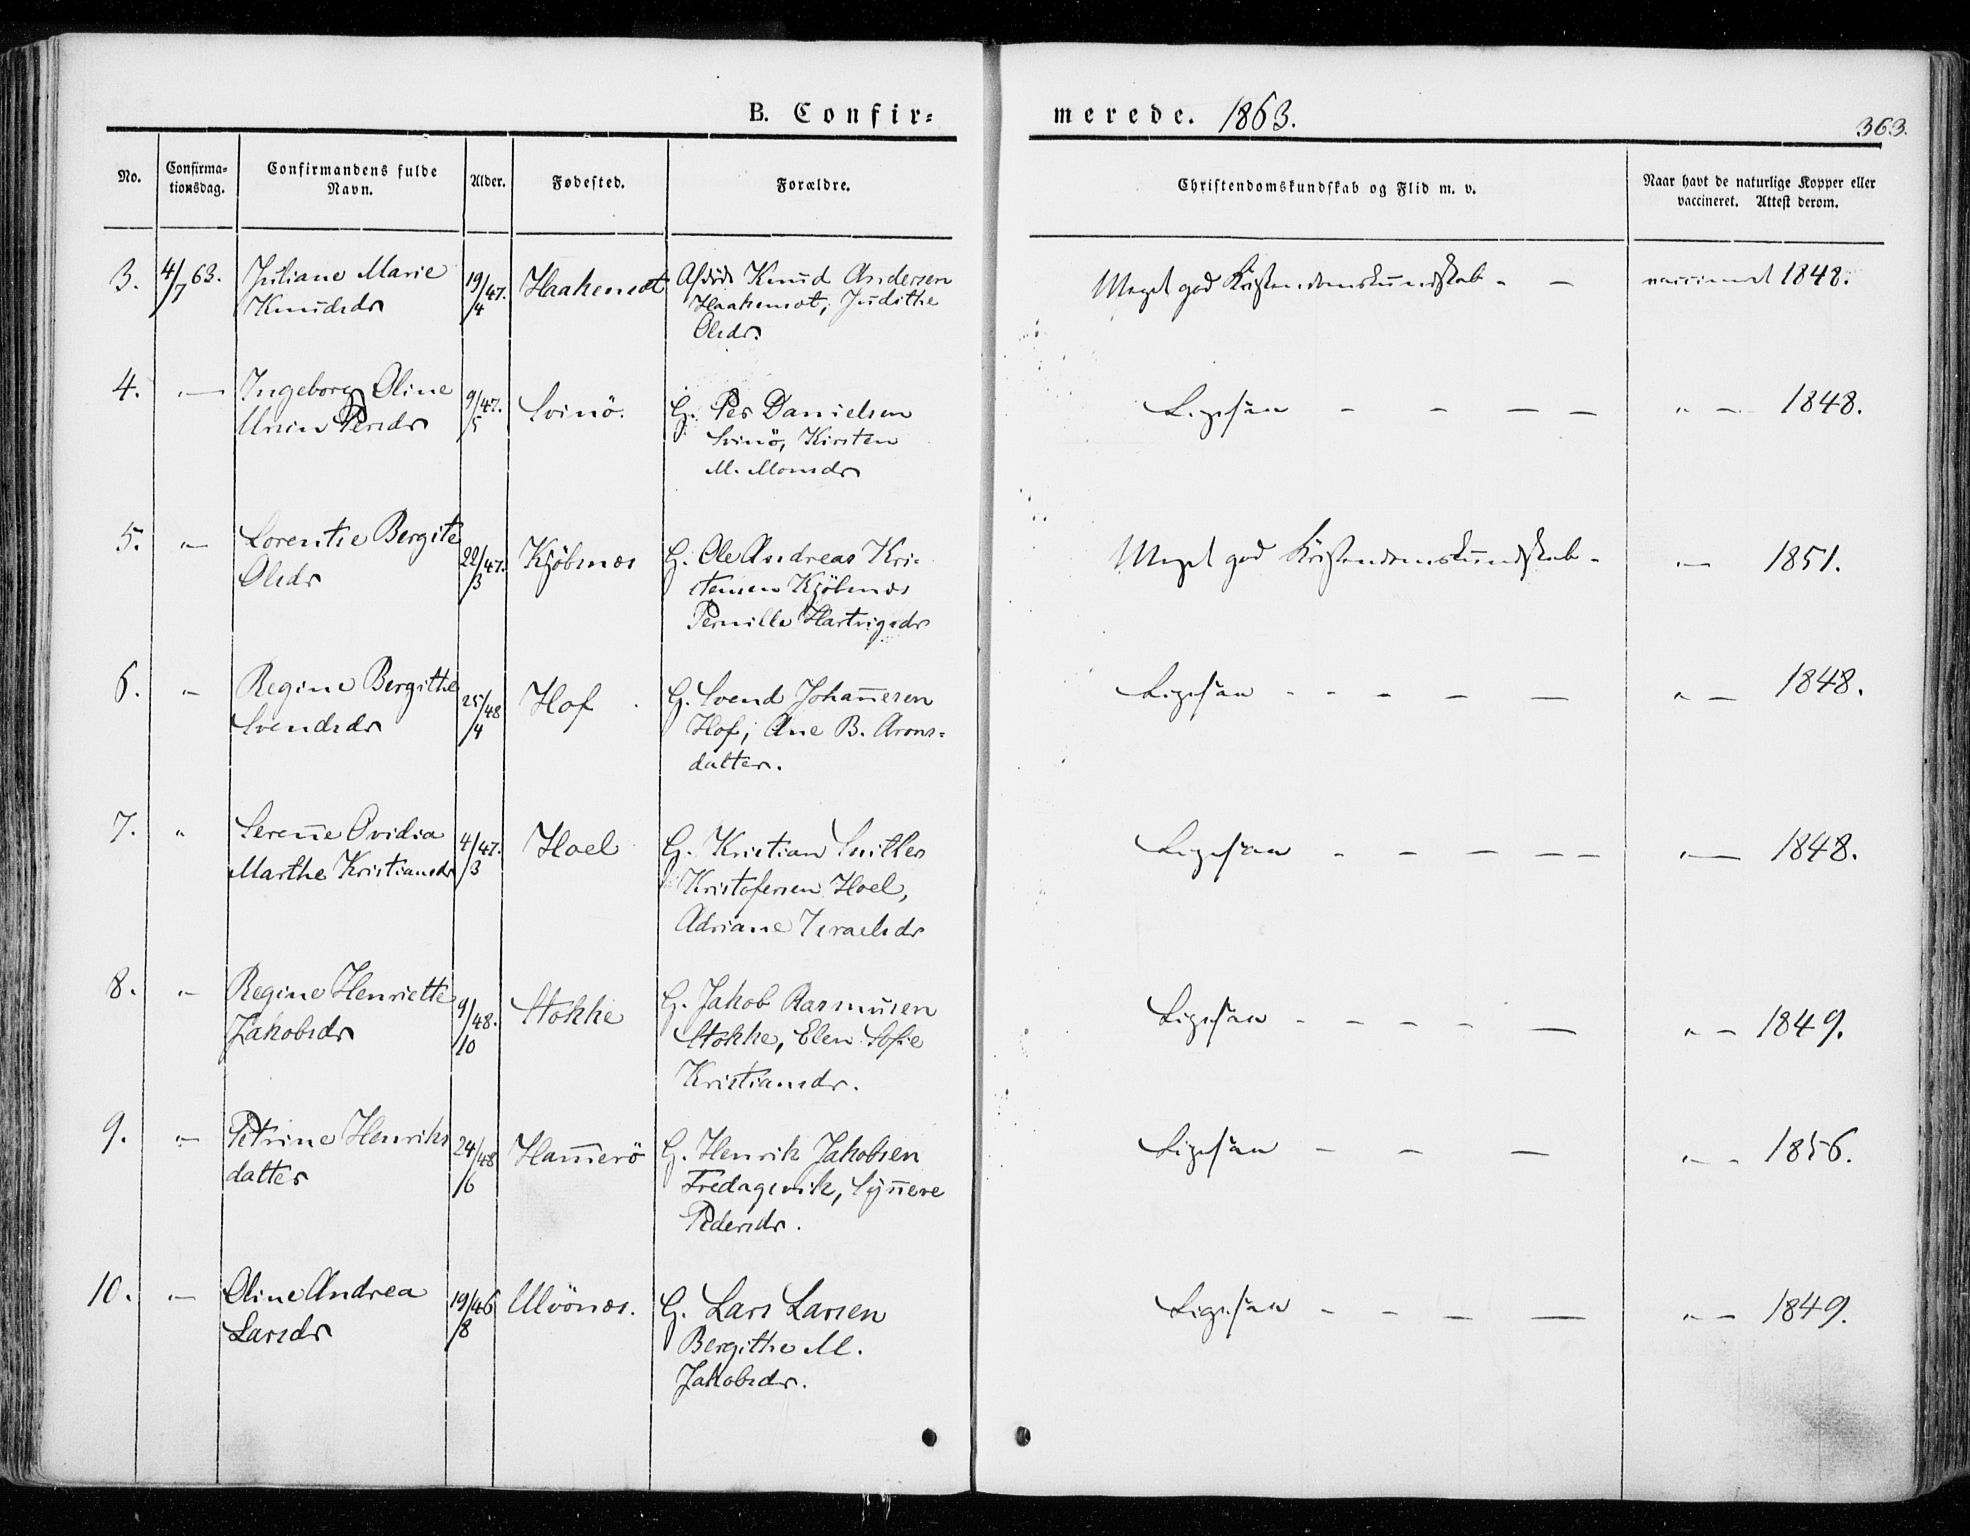 B. Confir= merede. 1863.
363.
No. Confirma- tionsdag. Confirmandens fulde Navn. Alder. Fødested. Forældre. Christendomskundskab og Flid m. v. Naar havt de naturlige Kopper eller vaccineret. Attest derom.
3. 4/7 63. Juliane Marie 19/4 47. Haakensot Afdøde Knud Andersen Meget god Kristendomskundskab - - vaccineret 1848.
Knudsdr Haakensot, Judithe
Olsdr.
4. — Ingeborg Oline 9/5 47. Svinö. G. Per Danielsen Ligesaa - - — — " — 1848.
Persdr Svinö, Kirsten
M. Monsdr
5. " Lorentse Bergite 22/3 47. Kjöbnæs G. Ole Andreas Kri- Meget god Kristendomskundskab - "— 1851.
Olsdr stensen Kjöbnæs
Pernille Hartvigsdr
6. " Regine Bergithe 25/4 48 Hof G. Svend Johañesen Ligesaa - - - — — " — 1848.
Svendsdr Hof, Ane B. Arons=
datter.
7. " Sereñe Ovidia 4/3 47. Hoel G. Kristian Ligesaa - - — — — "— 1848.
Marthe Kristiansdr Kristofersen Hoel,
Adriane Israelsdr
8. " Regine Henriette 9/10 48. Stokke G. Jakob Rasmusen Ligesaa - - - - — " — 1849.
Jakobsdr Stokke, Elen Sofie
Kristiansdr.
9. " Petrine Henriks 24/6 48 Ham̄erö G. Henrik Jakobsen Ligesaa - - — "— - 1856.
datter Fredagsvik, Syñeve
Pedersdr.
10. "— Oline Andrea 19/8 46 Ulvönæs. G. Lars Larsen Ligesaa - - — — "— 1849.
Larsdr Bergithe M.
Jakobsdr.